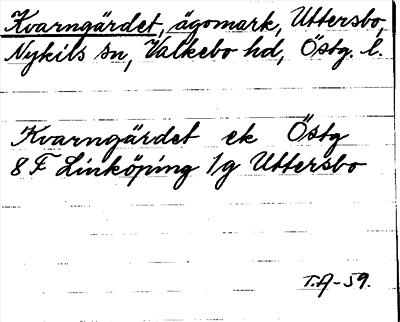 Kvarngärdet, ägomark, Uttersbo,
Nykils sn, Valkebo hd, Östg. l.
Kvarngärdet ek Östg
8 F Linköping 1g Uttersbo
T.A-59.